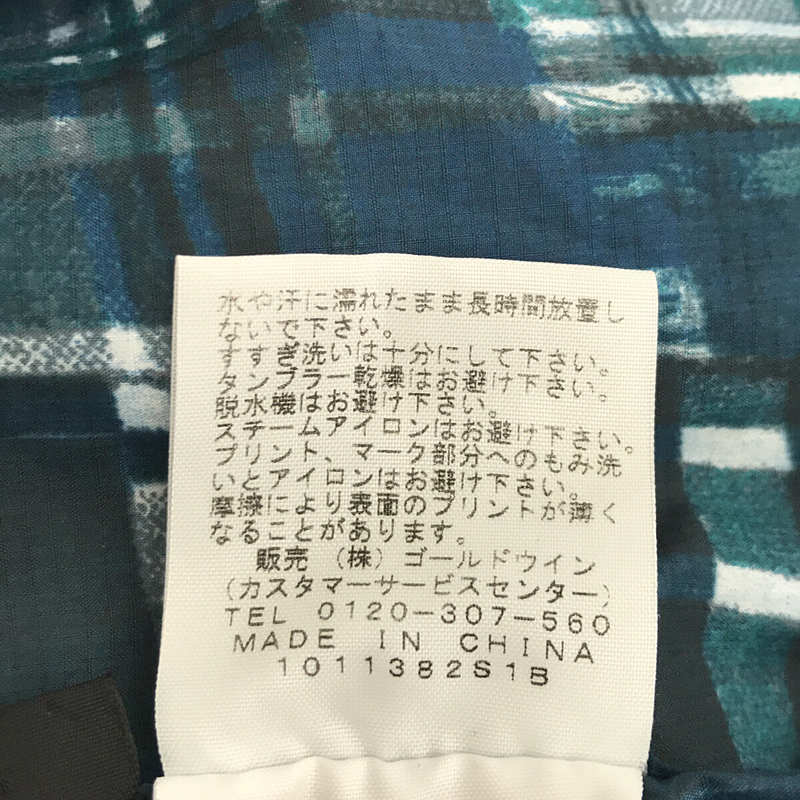 水や汗に濡れたまま長時間放置し
ないで下さい。
すすぎ洗いは十分にして下さい。
タンブラー乾燥はお避け下さい。
脱水機はお避け下さい。
スチームアイロンはお避け下さい。
プリント、マーク部分へのもみ洗
いとアイロンはお避け下さい。
摩擦により表面のプリントが薄く
なることがあります。
販売 (株) ゴールドウイン
(カスタマーサービスセンター)
TEL 0120-307-560
MADE IN CHINA
1011382S1B